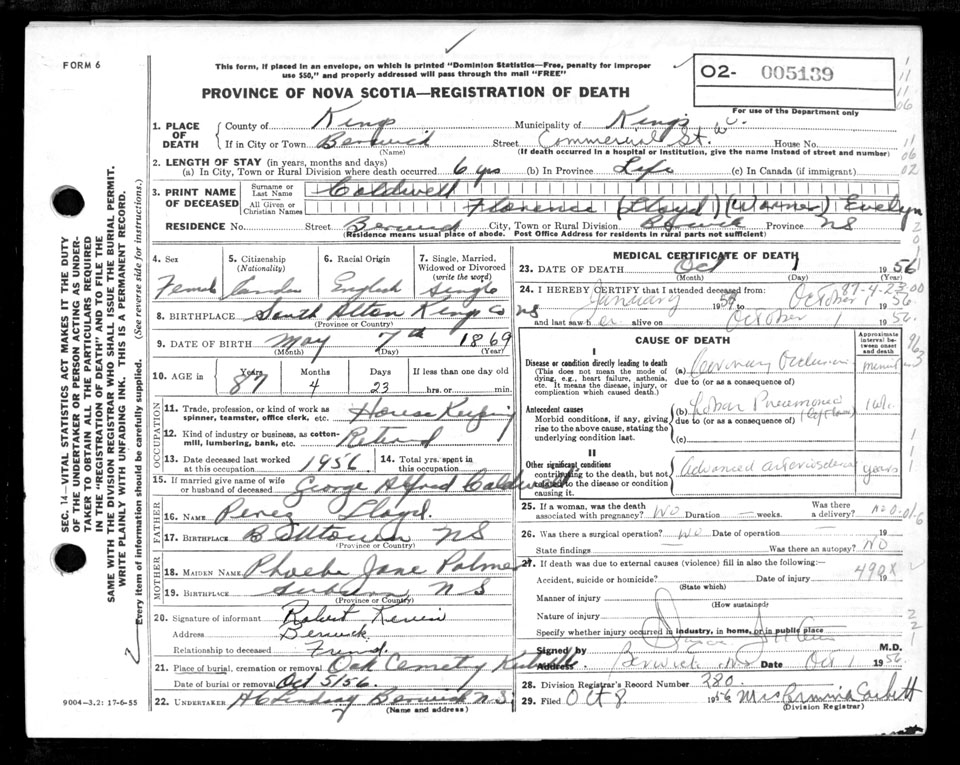 FORM 6
This form, if placed in an envelope, on which is printed "Dominion Statistics—Free, penalty for improper
use $50," and properly addressed will pass through the mail "FREE"
O2- 005139
For use of the Department only
PROVINCE OF NOVA SCOTIA—REGISTRATION OF DEATH
1. PLACE OF DEATH County of Kings Municipality of Kings
If in City or Town Berwick Street Commercial St. House No.
(Name) (If death occurred in a hospital or institution, give the name instead of street and number)
2. LENGTH OF STAY (in years, months and days)
(a) In City, Town or Rural Division where death occurred 6 yrs (b) In Province Life (c) In Canada (if immigrant)
3. PRINT NAME OF DECEASED Surname or Last Name Caldwell
All Given or Christian Names Florence (Lloyd) (Warner) Evelyn
RESIDENCE No. Street Berwick City, Town or Rural Division Berwick Province NS
(Residence means usual place of abode. Post Office Address for residents in rural parts not sufficient)
4. Sex
5. Citizenship (Nationality)
6. Racial Origin
7. Single, Married, Widowed or Divorced (write the word)
English Single
8. BIRTHPLACE South Alton Kings Co NS
(Province or Country)
9. DATE OF BIRTH May 7th 1869
(Month) (Day) (Year)
10. AGE in Years Months Days If less than one day old
87 4 23 hrs. or min.
OCCUPATION
11. Trade, profession, or kind of work as spinner, teamster, office clerk, etc. House Keeping
12. Kind of industry or business, as cotton-mill, lumbering, bank, etc. Retired
13. Date deceased last worked at this occupation 1956
14. Total yrs. spent in this occupation
15. If married give name of wife or husband of deceased George Alfred Caldwell
FATHER
16. NAME Perez Lloyd.
17. BIRTHPLACE NS
(Province or Country)
MOTHER
18. MAIDEN NAME Phoebe Jane Palmer
19. BIRTHPLACE NS
(Province or Country)
20. Signature of informant Robert
Address Berwick
Relationship to deceased Friend.
21. Place of burial, cremation or removal Oak Cemetry
Date of burial or removal Oct 5/56.
22. UNDERTAKER Berwick N.S.
(Name and address)
9004—3.2: 17-6-55
MEDICAL CERTIFICATE OF DEATH
23. DATE OF DEATH Oct 1 1956
(Month) (Day) (Year)
87-4-23 00
24. I HEREBY CERTIFY that I attended deceased from:
January 195 to October 1 1956
and last saw h er alive on October 1 1956.
CAUSE OF DEATH
Approximate interval between onset and death
I
Disease or condition directly leading to death
(This does not mean the mode of dying, e.g., heart failure, asthenia, etc. It means the disease, injury, or complication which caused death.)
(a) Coronary Occlusion
due to (or as a consequence of)
Antecedent causes
Morbid conditions, if any, giving rise to the above cause, stating the underlying condition last.
(b) Lobar Pneumonia 1 wk.
due to (or as a consequence of)
(c)
II
Other significant conditions contributing to the death, but not related to the disease or condition causing it.
Advanced arteriosclerosis years
25. If a woman, was the death associated with pregnancy? No Duration weeks. Was there a delivery? No
26. Was there a surgical operation? No Date of operation 19
State findings Was there an autopsy? No
27. If death was due to external causes (violence) fill in also the following:
Accident, suicide or homicide? Date of injury 19
490X
(State which)
Manner of injury
(How sustained)
Nature of injury
Specify whether injury occurred in industry, in home, or in public place
Signed by M.D.
Address Berwick, NS Date Oct 1 1956
28. Division Registrar's Record Number 380
29. Filed Oct 8 1956 Mrs Corbett
(Division Registrar)
SEC. 14—VITAL STATISTICS ACT MAKES IT THE DUTY
OF THE UNDERTAKER OR PERSON ACTING AS UNDER-
TAKER TO OBTAIN ALL THE PARTICULARS REQUIRED
IN THE "REGISTRATION OF DEATH" AND TO FILE THE
SAME WITH THE DIVISION REGISTRAR WHO SHALL ISSUE THE BURIAL PERMIT.
WRITE PLAINLY WITH UNFADING INK. THIS IS A PERMANENT RECORD.
Every item of information should be carefully supplied. (See reverse side for instructions.)